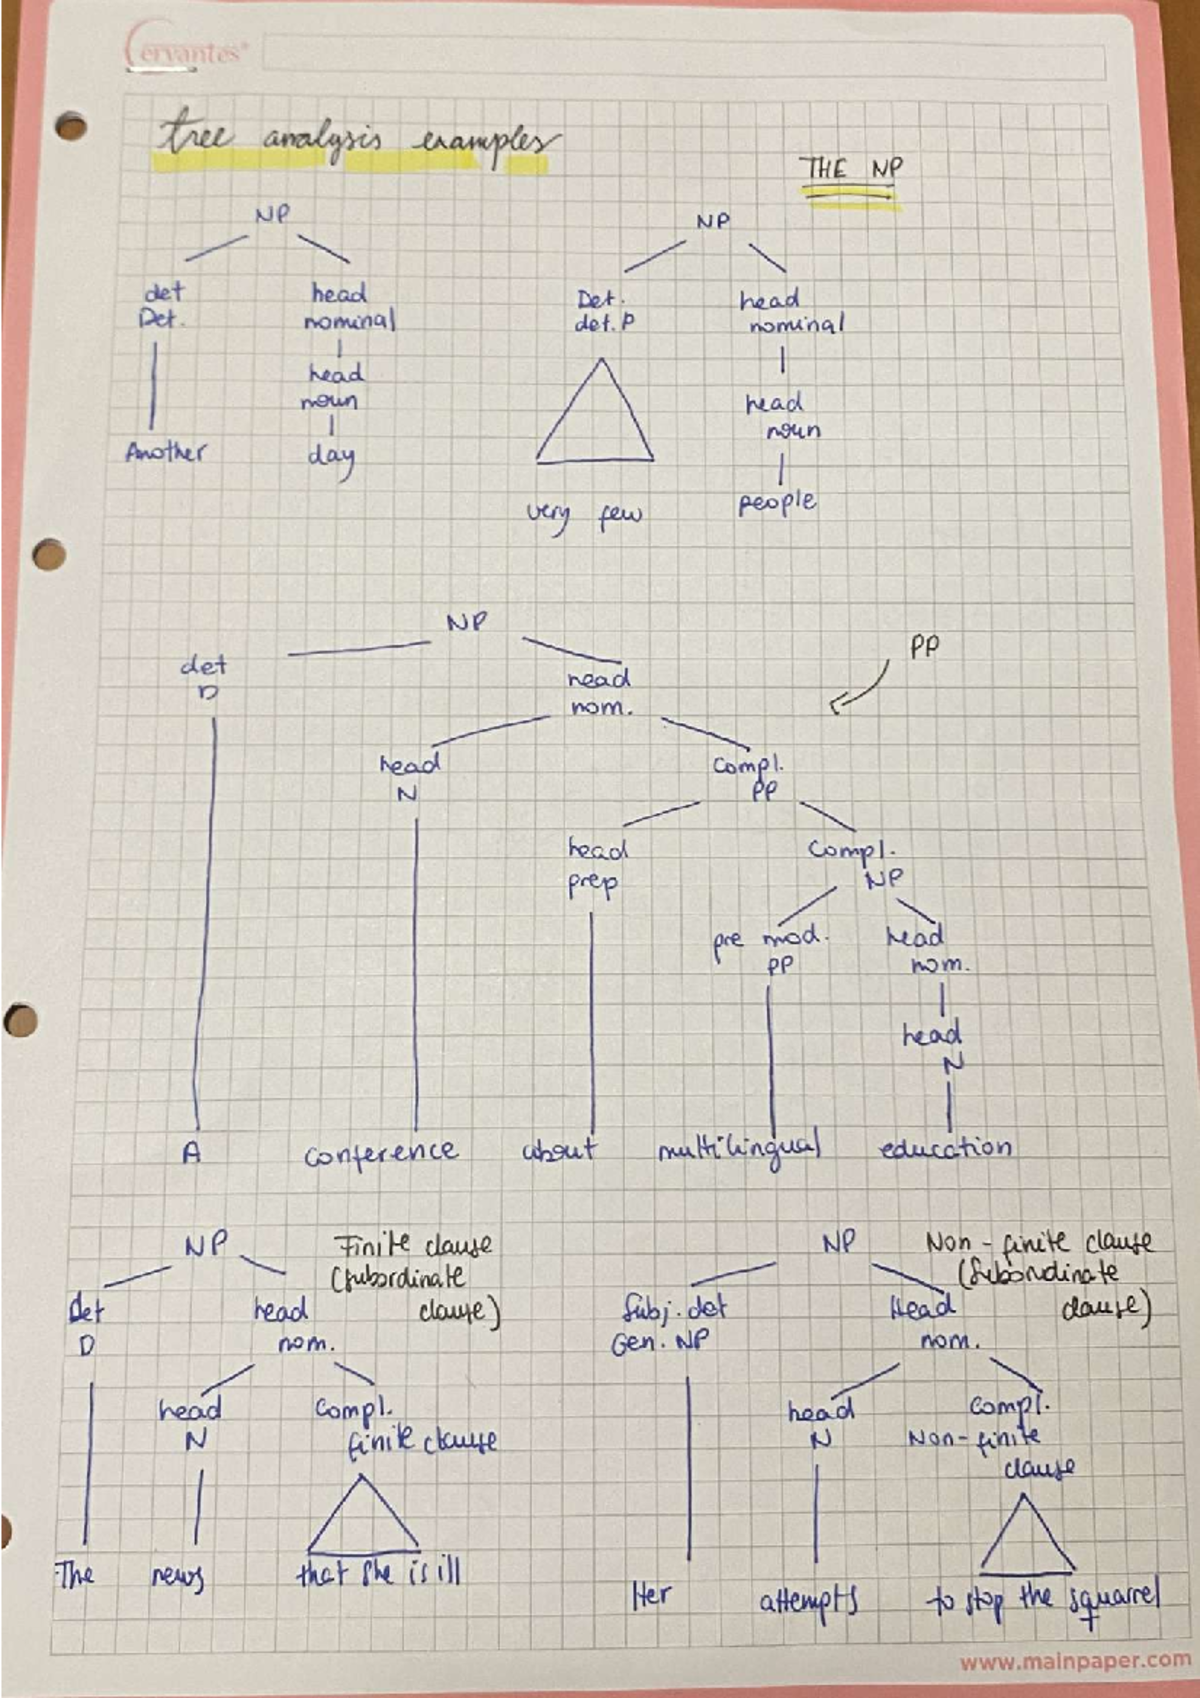 Cervantes®
tree analysis examples
THE NP
NP
det head
Det. nominal
head
noun
Another day
NP
Det. head
det. P nominal
head
noun
very few people
NP
PP
det head
D nom.
head Compl.
N PP
head Compl.
prep NP
pre mod. head
PP nom.
head
N
A conference about multilingual education
NP Finite clause
(subordinate
clause)
Det head
D nom.
head Compl.
N finite clause
The news that she is ill
NP Non-finite clause
(Subordinate
clause)
Subj. det Head
Gen. NP nom.
head Compl.
N Non-finite
clause
Her attempts to stop the squarrel
www.mainpaper.com